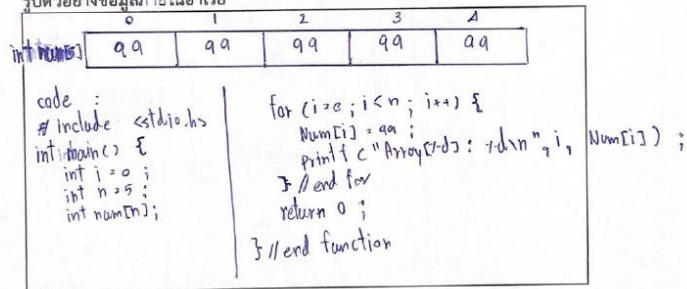 รูปตัวอย่างข้อมูลภายในอาเรย์
0 1 2 3 4
int num[5] 99 99 99 99 99
code :
# include <stdio.h>
int main() {
int i = 0 ;
int n = 5 ;
int num[n];
for (i=0 ; i<n ; i++) {
Num[i] = 99 ;
printf ("Array[%d] : %d\n", i, Num[i]) ;
} // end for
return 0 ;
} // end function